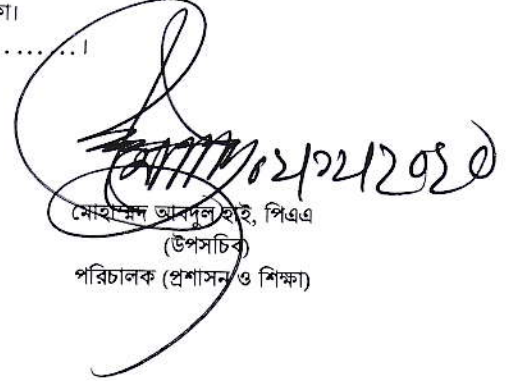 . . . . . . . ।
মোহাম্মদ আবদুল হাই, পিএএ
(উপসচিব)
পরিচালক (প্রশাসন ও শিক্ষা)